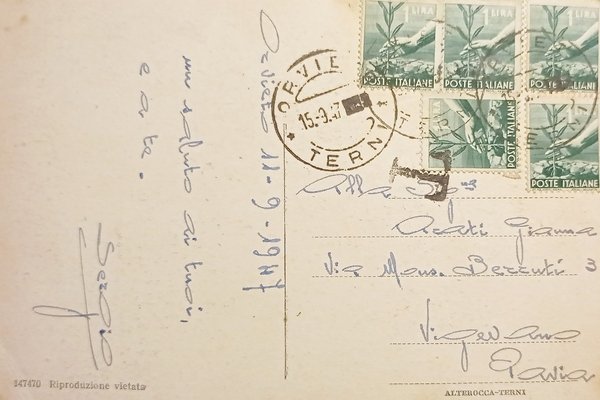 Orvieto 11-9-1947
un saluto ai tuoi,
e a te.
Sergio
147470 Riproduzione vietata
ORVIETO
15.9.47
TERNI
T
1 LIRA
POSTE ITALIANE
1 LIRA
POSTE ITALIANE
1 LIRA
POSTE ITALIANE
POSTE ITALIANE
POSTE ITALIANE
Alla Sig.na
Gianna
Via Mons. Berruti 3
Vigevano
Pavia
ALTEROCCA-TERNI